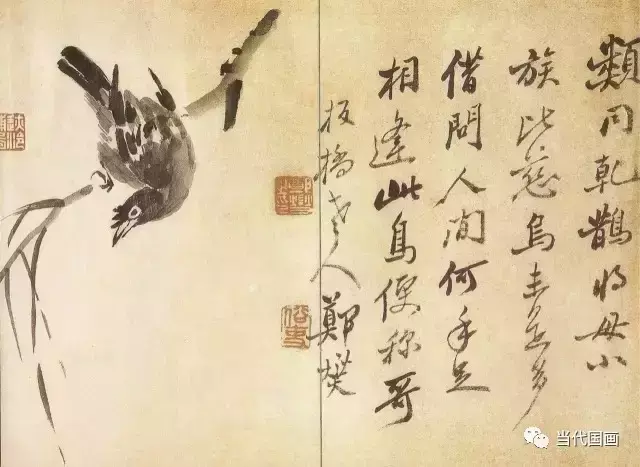 類同乾鵲將毋小
族比慈烏未足多
借問人间何手足
相逢此鳥便称哥
板橋老人鄭燮
当代国画